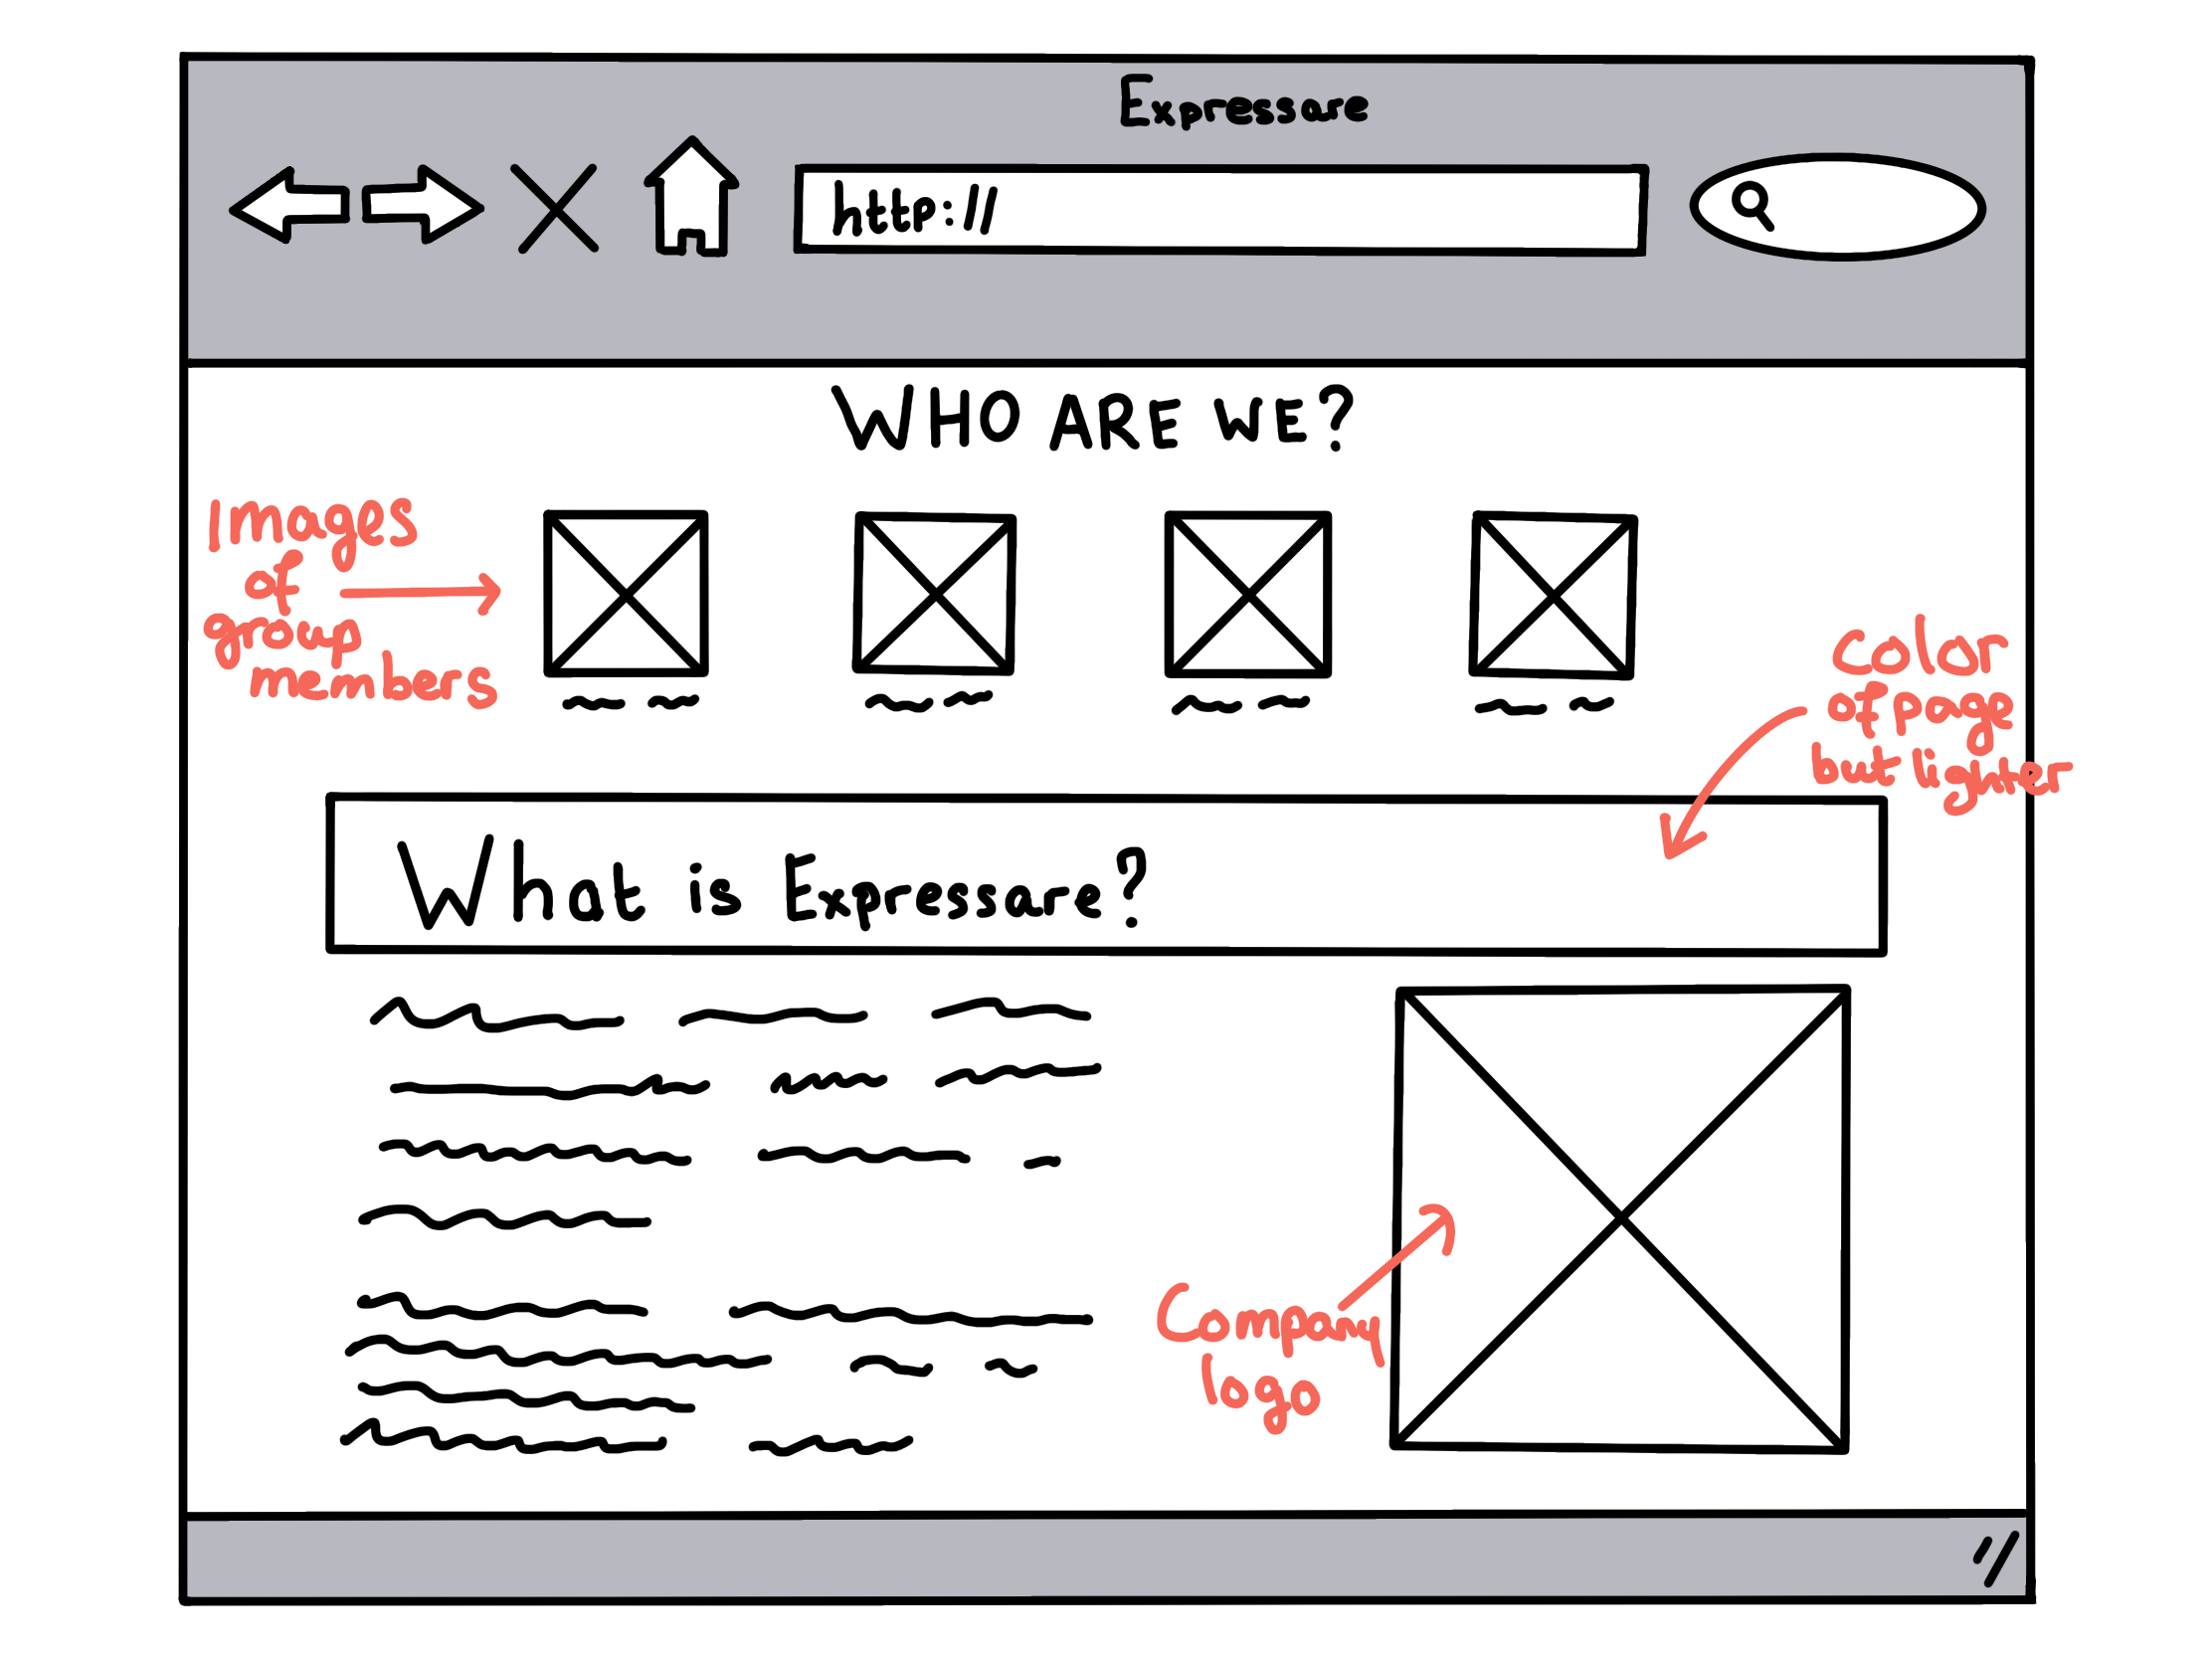 Expressare
http://
WHO ARE WE?
Images
of
group
members
Color
of page
but lighter
What is Expressare?
Company
logo